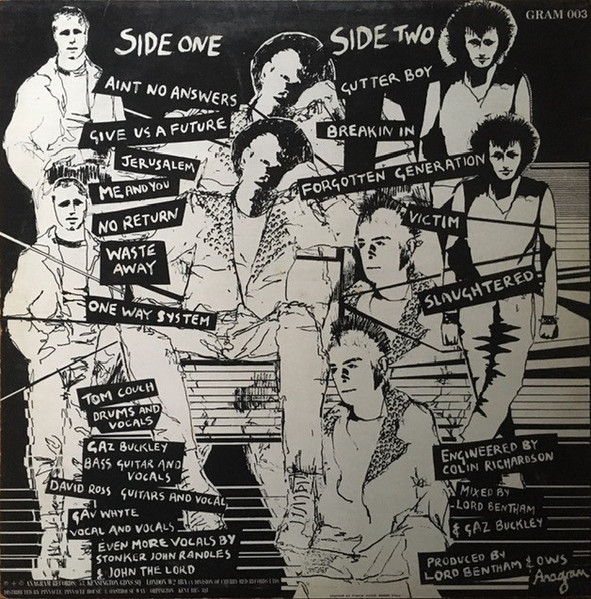 GRAM 003
SIDE ONE
AINT NO ANSWERS
GIVE US A FUTURE
JERUSALEM
ME AND YOU
NO RETURN
WASTE
AWAY
ONE WAY SYSTEM
SIDE TWO
GUTTER BOY
BREAKIN IN
FORGOTTEN GENERATION
VICTIM
SLAUGHTERED
TOM COUCH
DRUMS AND
VOCALS
GAZ BUCKLEY
BASS GUITAR AND
VOCALS
DAVID ROSS GUITARS AND VOCAL
GAV WHYTE
VOCAL AND VOCALS
EVEN MORE VOCALS BY
STONKER JOHN RANDLES
& JOHN THE LORD
ENGINEERED BY
COLIN RICHARDSON
MIXED BY
LORD BENTHAM
& GAZ BUCKLEY
PRODUCED BY
LORD BENTHAM & OWS
Anagram
ANAGRAM RECORDS KENSINGTON GDNS SQ LONDON W2 A DIVISION OF CHERRY RED RECORDS LTD
DISTRIBUTED BY PINNACLE, PINNACLE HOUSE WAY ORPINGTON KENT